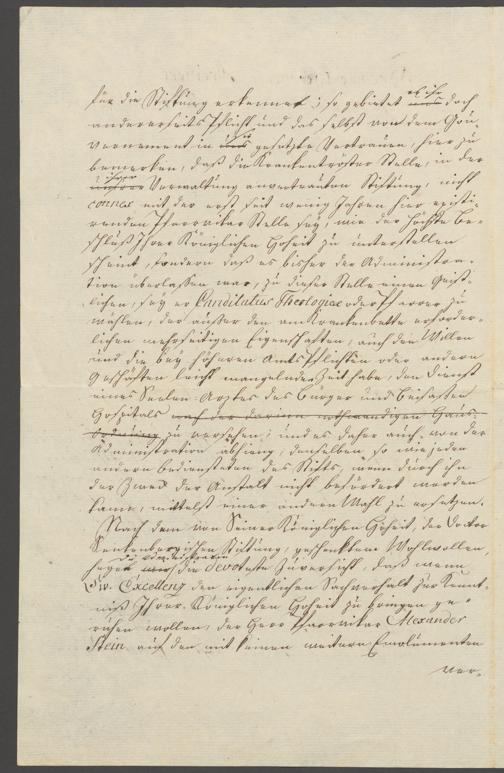 für die Stiftung erkennet; so gebietet uns ob ihr doch
andererseits Pflicht und das selbst von dem Gou-
vernement in uns sie gesetzte Vertrauen, hier zu
bemerken, daß die Krankentröster Stelle, in der
unserer ihrer Verwaltung anvertrauten Stiftung, nicht
connex mit der erst seit wenig Jahren hier existi-
renden Pfarrvikar Stelle sey, wie der höchste Be-
schluß Ihrer Königlichen Hoheit zu unterstellen
scheint, sondern daß es bisher der Administra-
tion überlassen war, zu dieser Stelle einen Geist-
lichen, sey er Candidatus Theologiae oder Pfarrer zu
wählen, der außer den am Krankenbette erforder-
lichen mehrseitigen Eigenschaften, auch den Willen
und die bey höheren Amts Pflichten oder andern
Geschäften leicht mangelnde Zeit habe, den Dienst
eines Seelen Arztes des Burger und Beisassen
Hospitals nach der darinn nothwendigen Haus-
ordnung zu versehen; und es daher auch von der
Administration abhieng, denselben, so wie jeden
andern Bediensteten des Stifts, wenn durch ihn
der Zweck der Anstalt nicht befördert werden
kann, mittelst einer andern Wahl zu ersetzen.
Nach dem von Seiner Königlichen Hoheit, der Doctor
Senkenbergischen Stiftung, geschenkten Wohlwollen,
heget die Administration die devoteste Zuversicht, daß wenn
Ew. Excellenz den eigentlichen Sachverhalt zur Kennt-
niß Ihrer Königlichen Hoheit zu bringen ge-
ruhen wollen, der Herr Pfarrvikar Alexander
Stein auf den mit keinen weitern Emolumenten
ver-